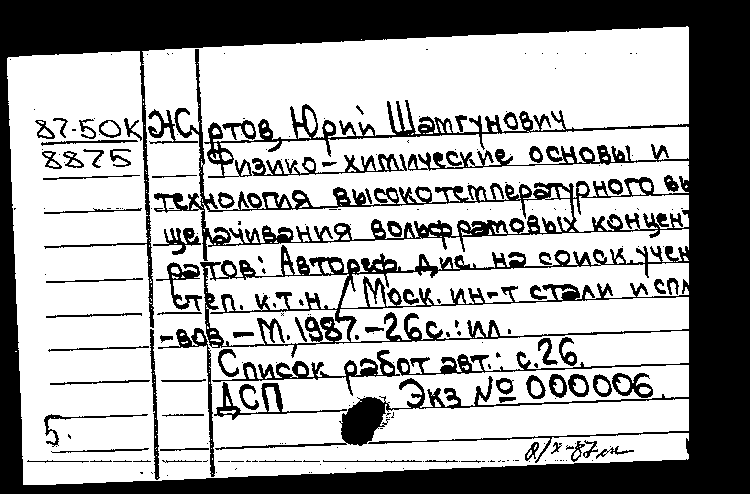 87-50К Журтов, Юрий Шамгунович
8875 Физико-химические основы и
технология высокотемпературного вы
щелачивания вольфрамовых концент
ратов: Автореф. дис. на соиск. учен
степ. к.т.н. / Моск. ин-т стали и спл
-вов. – М. 1987. – 26 с.: ил.
Список работ авт.: с. 26.
ДСП Экз № 000006.
5.
8/X-87